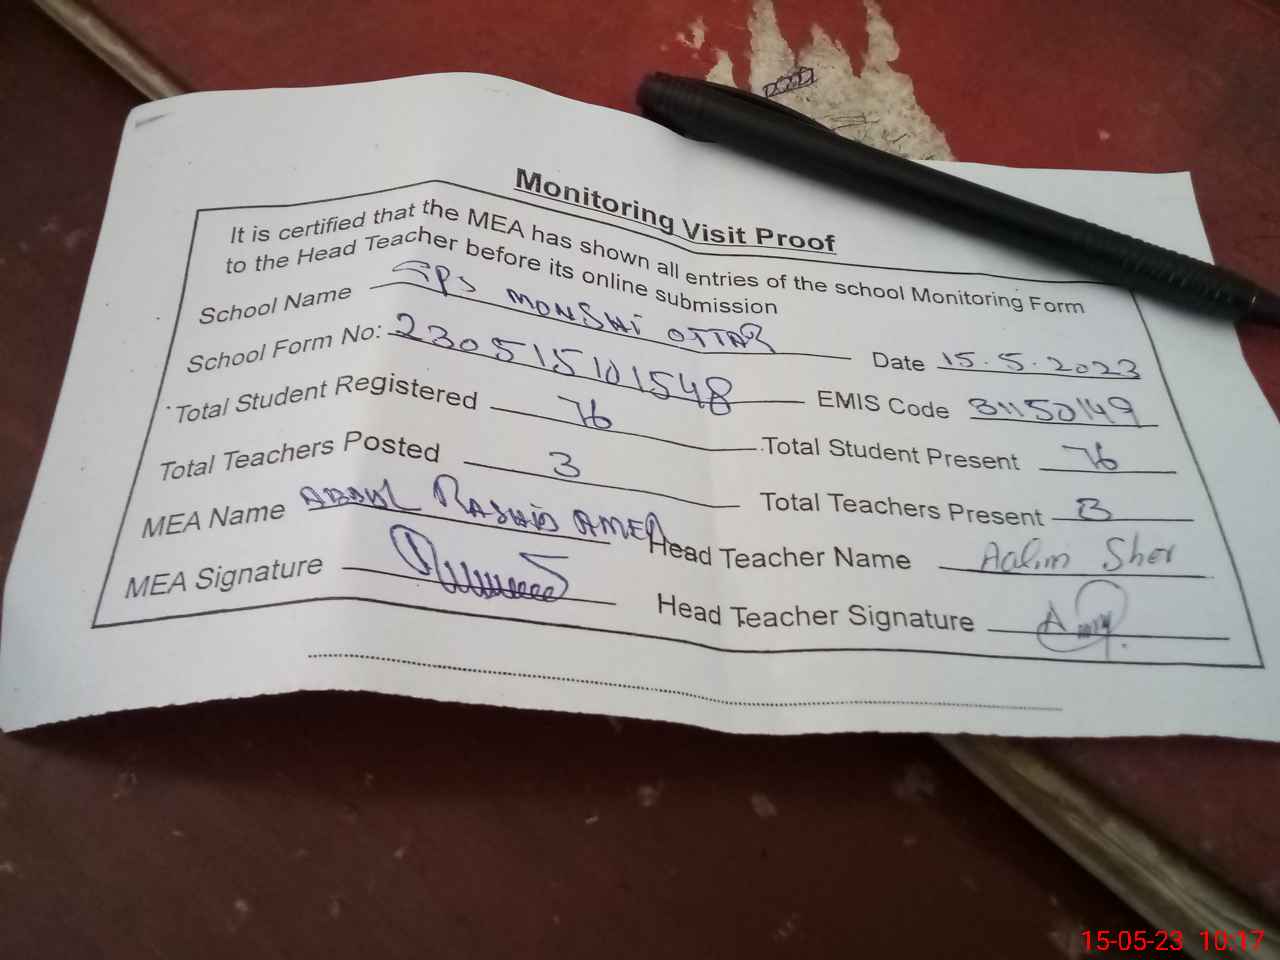 Monitoring Visit Proof
It is certified that the MEA has shown all entries of the school Monitoring Form
to the Head Teacher before its online submission
School Name GPS MONSHI OTTAR Date 15.5.2023
School Form No: 230515101548 EMIS Code 31150149
Total Student Registered 76 Total Student Present 76
Total Teachers Posted 3 Total Teachers Present 3
MEA Name ABDUL RASHID AMER Head Teacher Name Aalim Sher
MEA Signature Head Teacher Signature
15-05-23 10:17